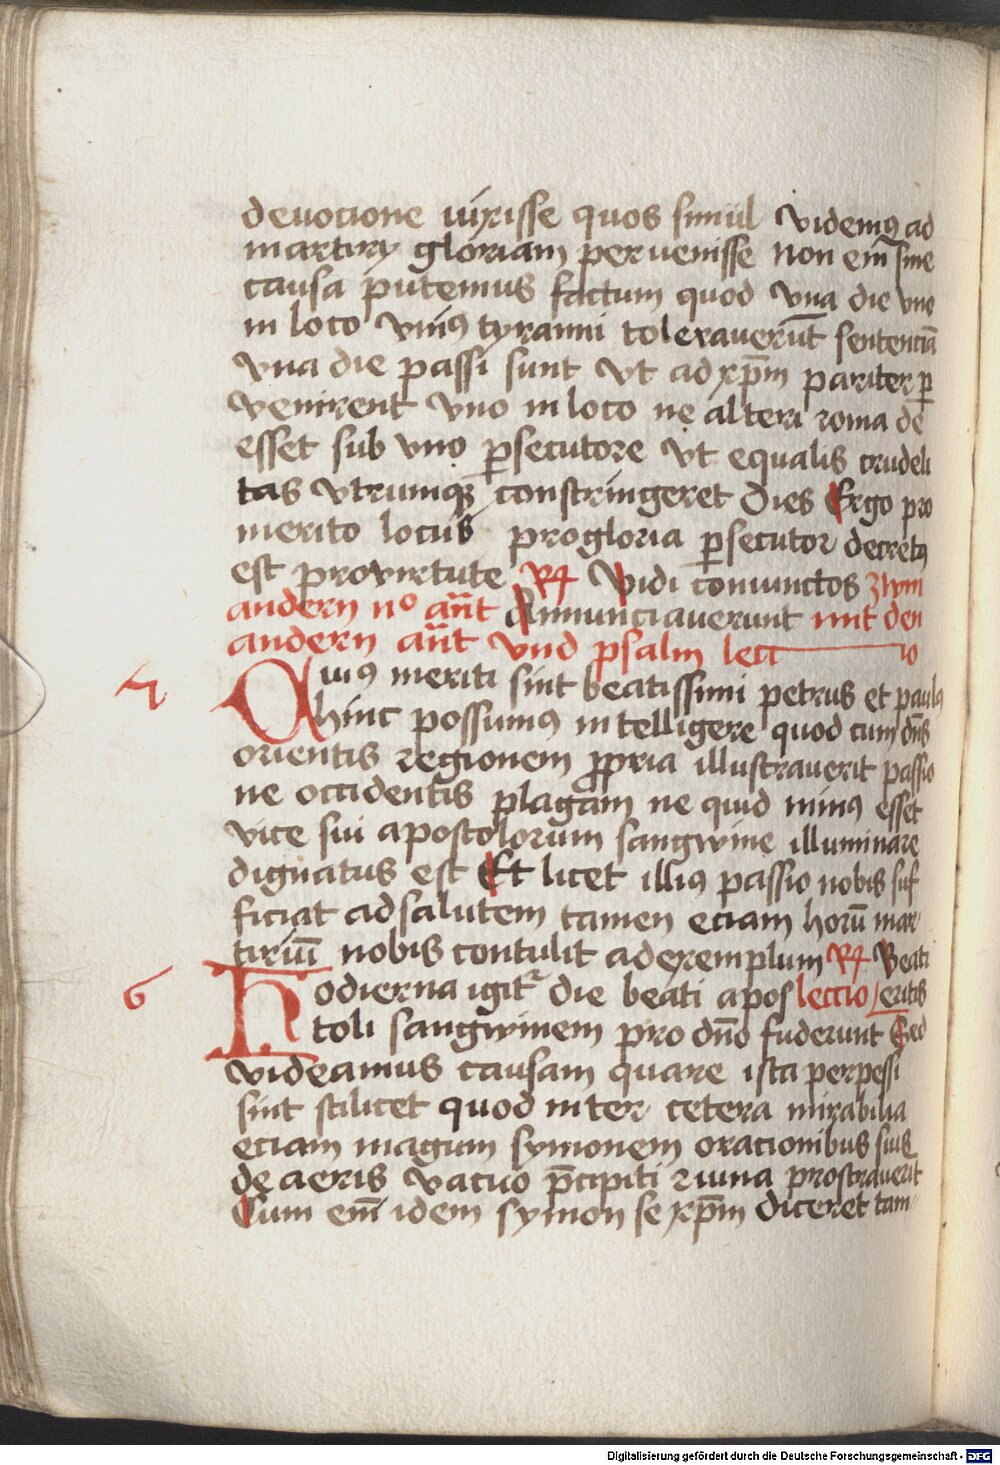 deuocione vixisse quos simul videmꝰ ad
martiry gloriam peruenisse non em̄ sine
causa putemus factum quod vna die vno
in loco vniꝰ tyranni tolerauerūt sentenciā
vna die passi sunt vt ad xp̄m pariter ꝑ
venirent vno in loco ne alteri roma de
esset sub vno ꝑsecutore vt equalis crudeli
tas vtrumqꝫ constringeret Dies Ergo pro
merito locus pro gloria ꝑsecutor decretꝰ
est pro virtute R Vidi coniunctos zwm
andern no an̄t Annunciauerunt mit den
andern an̄t vnd psalm lectio
Cuiꝰ meriti sint beatissimi petrus et paulꝰ
hinc possumꝰ intelligere quod cum dn̄s
orientis regionem ꝓpria illustrauerit passio
ne occidentis plagam ne quid minꝰ esset
vice sui apostolorum sangwine illuminare
dignatus est Et licet illiꝰ passio nobis suf
ficiat ad salutem tamen eciam horū mar
tiriū nobis contulit ad exemplum R Beati
6 Hodierna igitr die beati apos lectio eritis
toli sangwinem pro dn̄o fuderunt Sed
videamus causam quare ista perpessi
sint scilicet quod inter cetera mirabilia
eciam magum symonem oracionibus suis
de aeris vacuo p̄cipiti ruina prostrauerit
Cum em̄ idem symon se xp̄m diceret tam
Digitalisierung gefördert durch die Deutsche Forschungsgemeinschaft - DFG